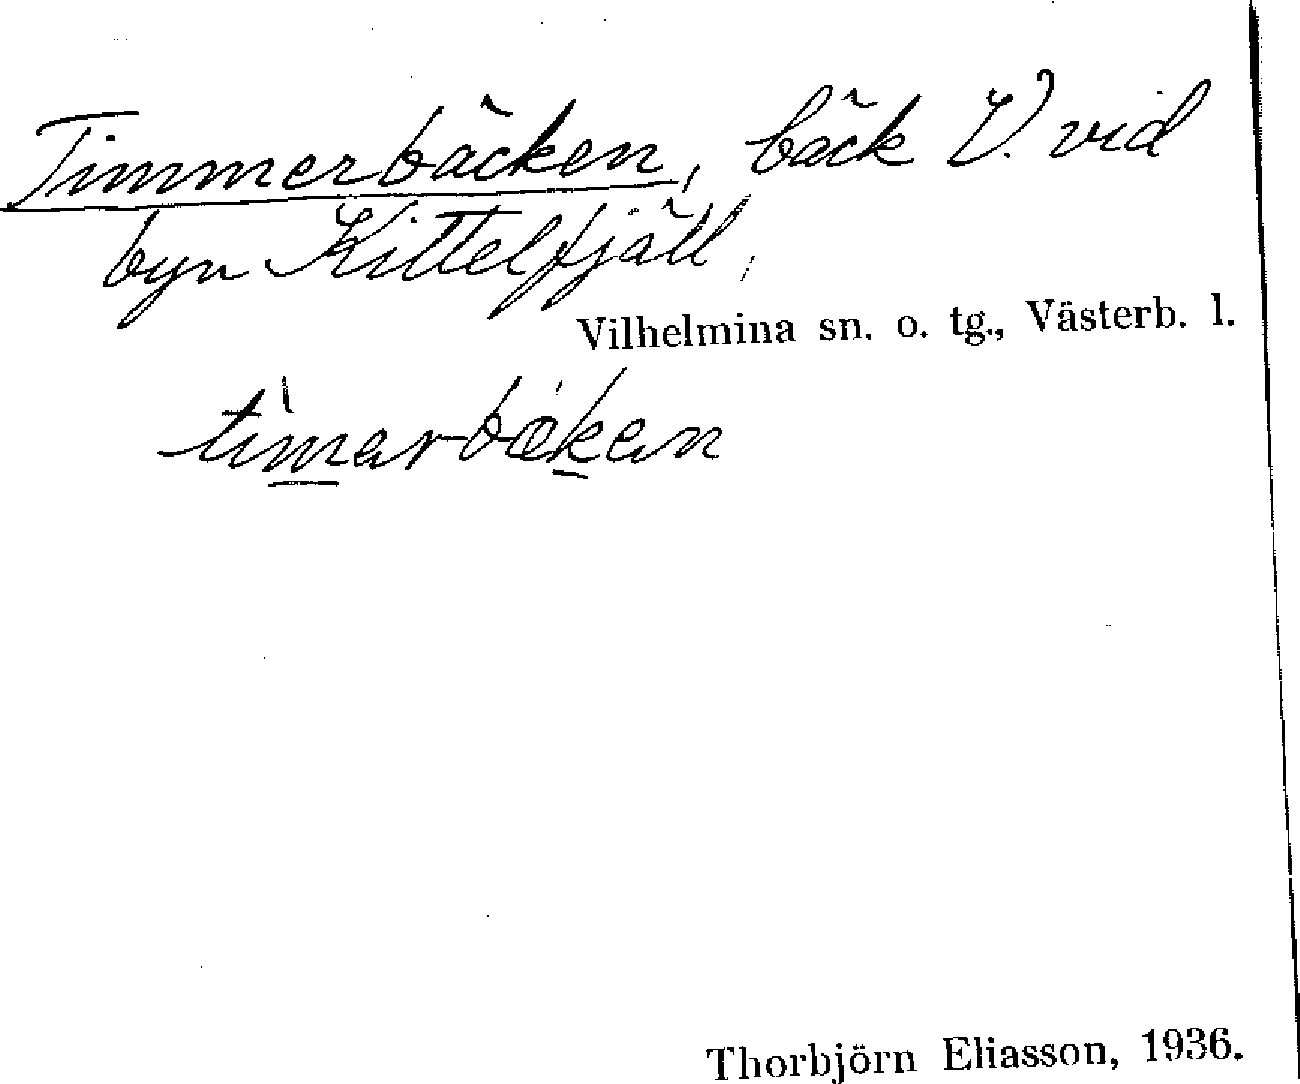 Timmerbäcken, bäck V. vid
byn Kittelfjäll,
Vilhelmina sn. o. tg., Västerb. l.
timarbækan
Thorbjörn Eliasson, 1936.